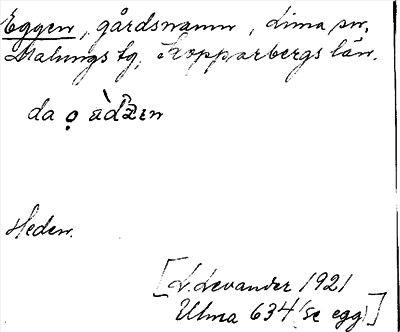 Eggen, gårdsnamn, Lima sn,
Malungs tg, Kopparbergs län.
da o̩ ädžɪn
Heden.
[L. Levander 1921
Ulma 634 (se egg)]